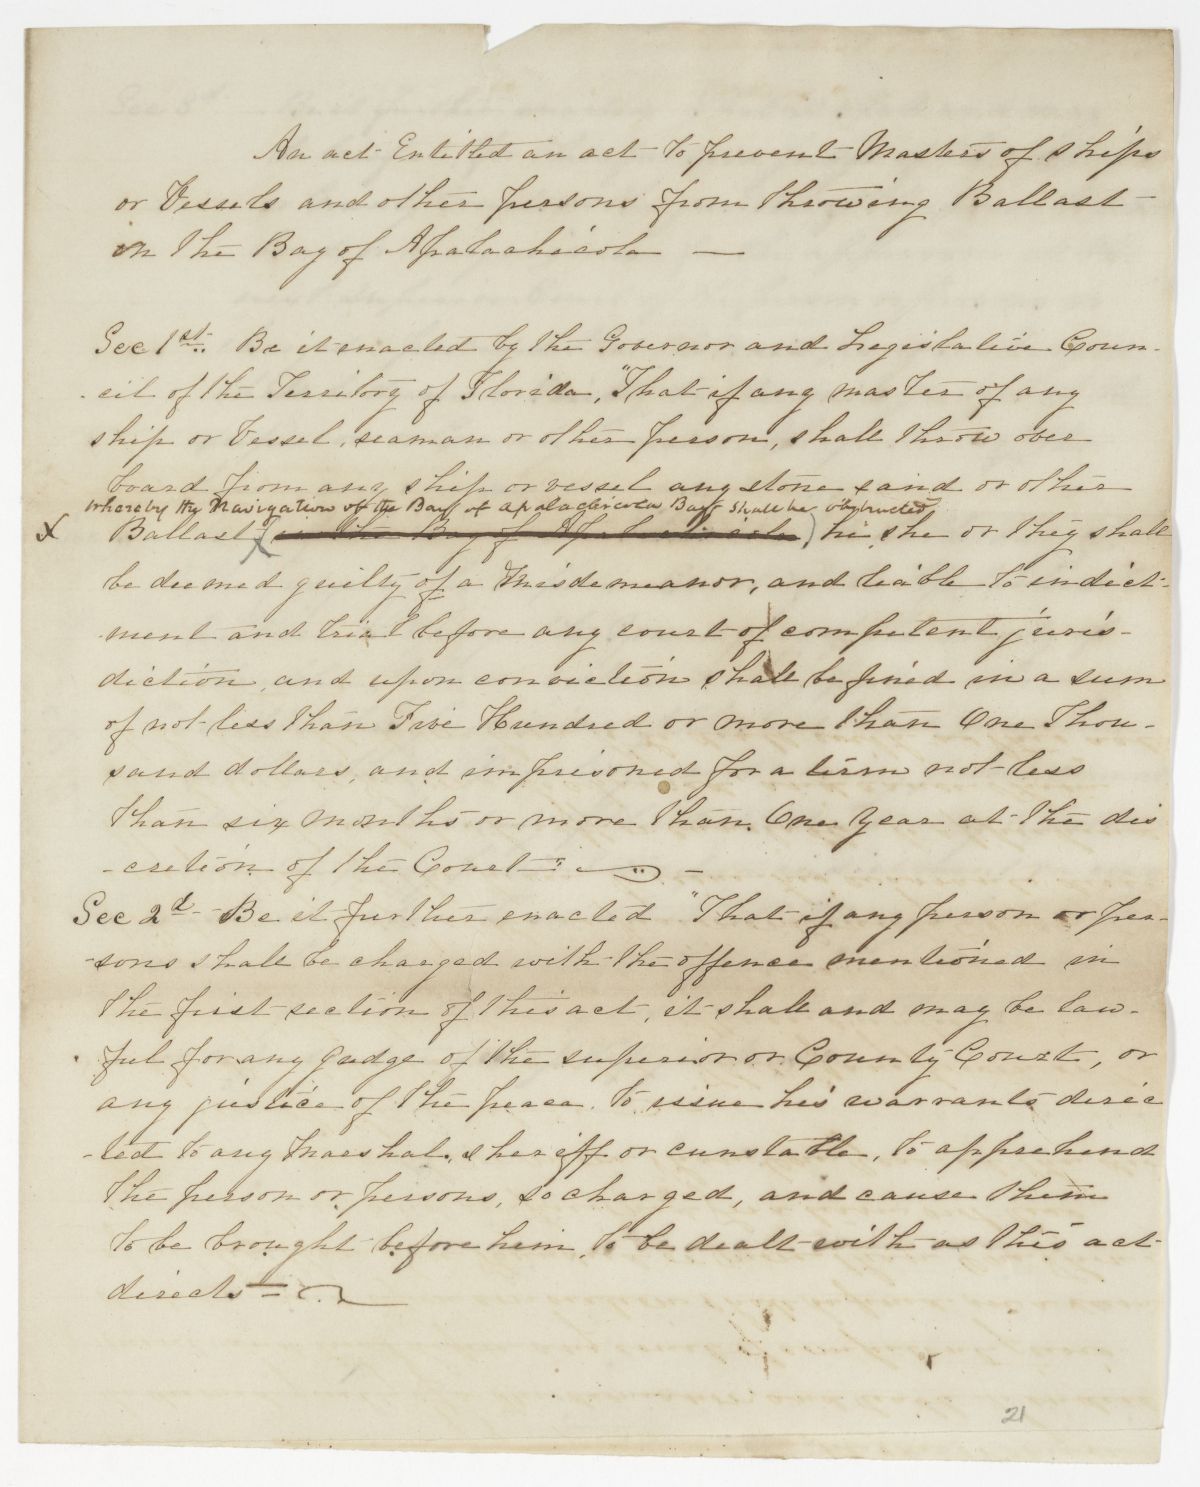 An act Entitled an act to prevent Masters of ships
or Vessels and other persons from throwing Ballast
in the Bay of Apalachicola —
Sec 1st. Be it enacted by the Governor and Legislative Coun-
-cil of the Territory of Florida, "That if any master of any
ship or Vessel, seaman or other person, shall throw over
board from any ship or vessel any stone sand or other
whereby the Navigation of the Bay of apalachicola Bay shall be obstructed
x Ballast (in the Bay of Apalachicola) he, she or they shall
be deemed guilty of a Misdemeanor, and liable to indict-
-ment and trial before any court of competent juris-
diction, and upon conviction shall be fined in a sum
of not less than Five Hundred or more than One Thou-
sand dollars, and imprisoned for a term not less
than six months or more than One Year at the dis
-cretion of the Court —
Sec 2d - Be it further enacted "That if any person or per-
-sons shall be charged with the offence mentioned in
the first section of this act, it shall and may be law-
ful for any Judge of the superior or County Court, or
any justice of the peace, to issue his warrants direc
-ted to any Marshal, sheriff or cunstable, to apprehend
the person or persons, so charged, and cause them
to be brought before him, to be dealt with as this act
directs —
21